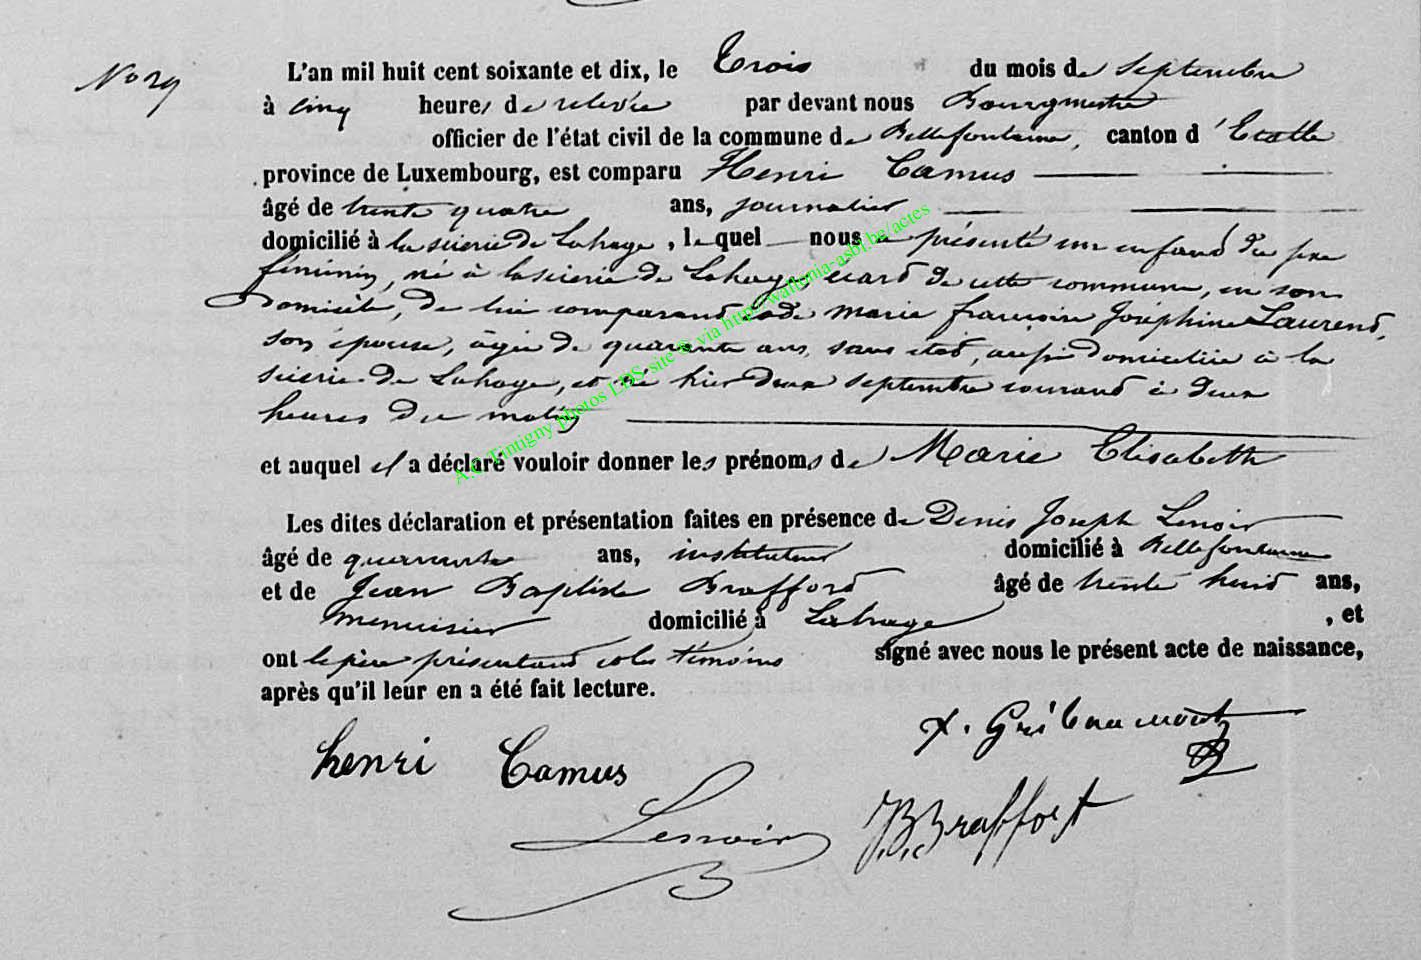 No 29
L'an mil huit cent soixante et dix, le Trois du mois de Septembre
à cinq heures de relevée par devant nous Bourgmestre
officier de l'état civil de la commune de Bellefontaine, canton d'Etalle
province de Luxembourg, est comparu Henri Camus
âgé de trente quatre ans, journalier
domicilié à la scierie de Lahage, lequel nous a présenté un enfand du sexe
féminin, né à la scierie de Lahage, écard de cette commune, en son
Domicile, de lui comparand et de marie françoise Joséphine Laurend,
son épouse, âgée de quarante ans, sans etad, aussi domiciliée à la
scierie de Lahage, et né hier deux septembre courand à deux
heures du matin
et auquel il a déclaré vouloir donner les prénoms de Marie Elisabeth
Les dites déclaration et présentation faites en présence de Denis Joseph Lenoir
âgé de quarante ans, instituteur domicilié à Bellefontaine
et de Jean Baptiste Brafford âgé de trente huid ans,
menuisier domicilié à Lahage, et
ont le père présentand et les témoins signé avec nous le présent acte de naissance,
après qu'il leur en a été fait lecture.
henri Camus
x. Gribaumont
Lenoir
J.B. Braffort
A.C. Tintigny photos LDS site @ via http://wallonia-asbl.be/actes